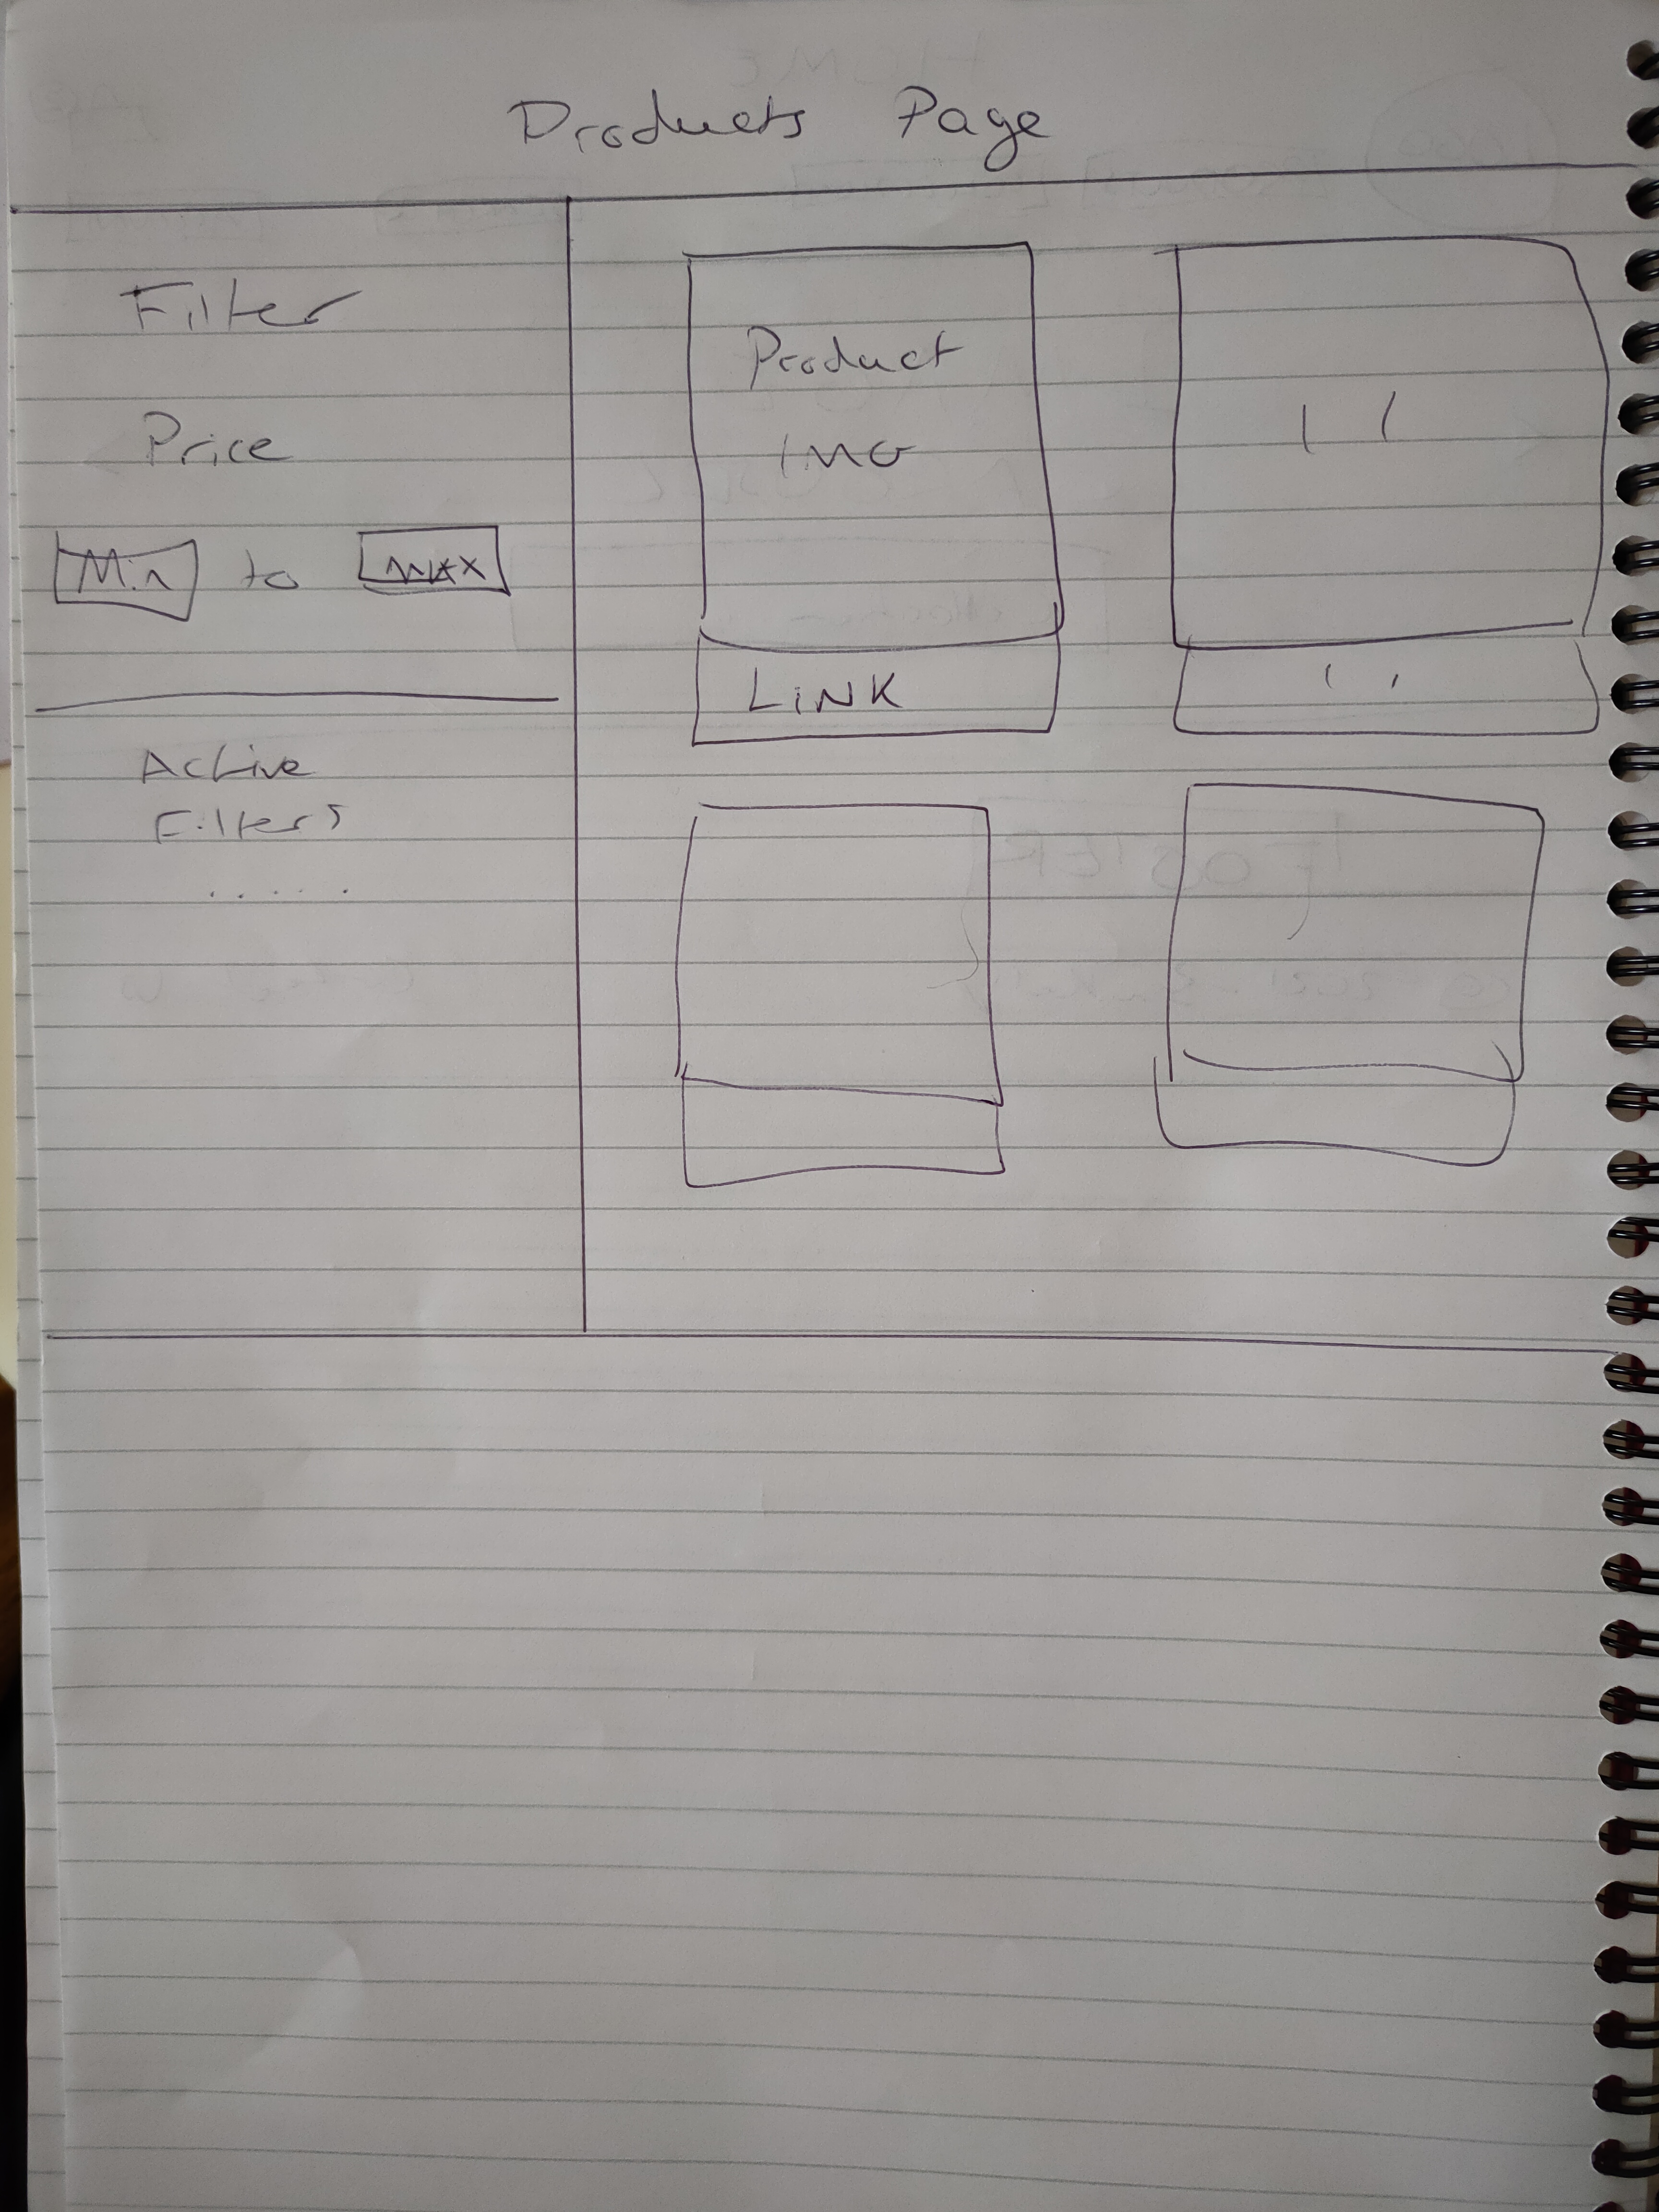 Products Page
Filter
Price
Min to max
Active
Filters
.....
Product
IMG
LINK
" "
" "